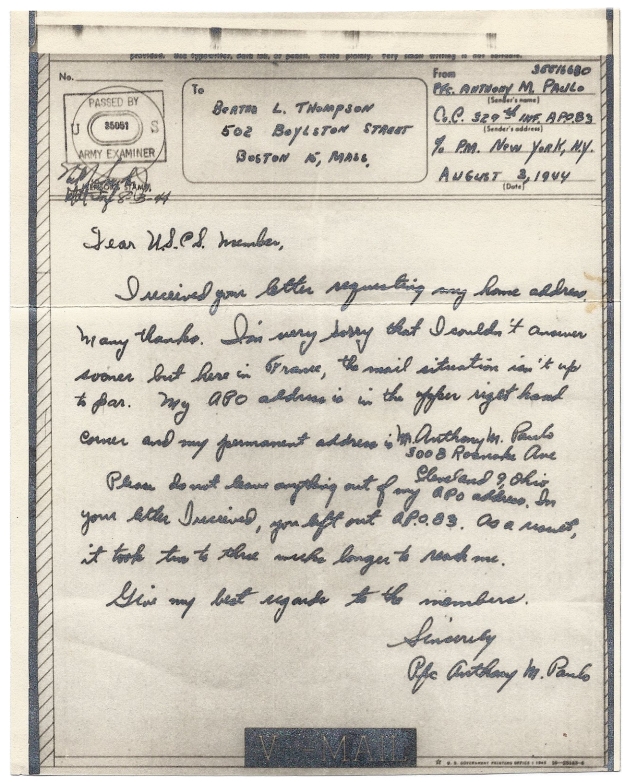 provided. Use typewriter, dark ink, or pencil. Write plainly. Very small writing is not suitable.
No.
PASSED BY
U 35051 S
ARMY EXAMINER
(CENSOR'S STAMP)
To
BERTHA L. THOMPSON
502 BOYLSTON STREET
BOSTON 15, MASS.
From 35516680
PFC. ANTHONY M. PAULO
(Sender's name)
Co.C. 329th INF. A.P.O. 83
(Sender's address)
% P.M. NEW YORK, N.Y.
AUGUST 3, 1944
(Date)
Dear U.S.C.S. Member,
I received your letter requesting my home address.
Many thanks. I'm very sorry that I couldn't answer
sooner but here in France, the mail situation isn't up
to par. My APO address is in the upper right hand
corner and my permanent address is Mr. Anthony M. Paulo
3008 Roanoke Ave
Cleveland 9, Ohio
Please do not leave anything out of my APO address. In
your letter I received, you left out A.P.O. 83. As a result,
it took two to three weeks longer to reach me.
Give my best regards to the members.
Sincerely
Pfc Anthony M. Paulo
V - MAIL
☆ U. S. GOVERNMENT PRINTING OFFICE : 1943